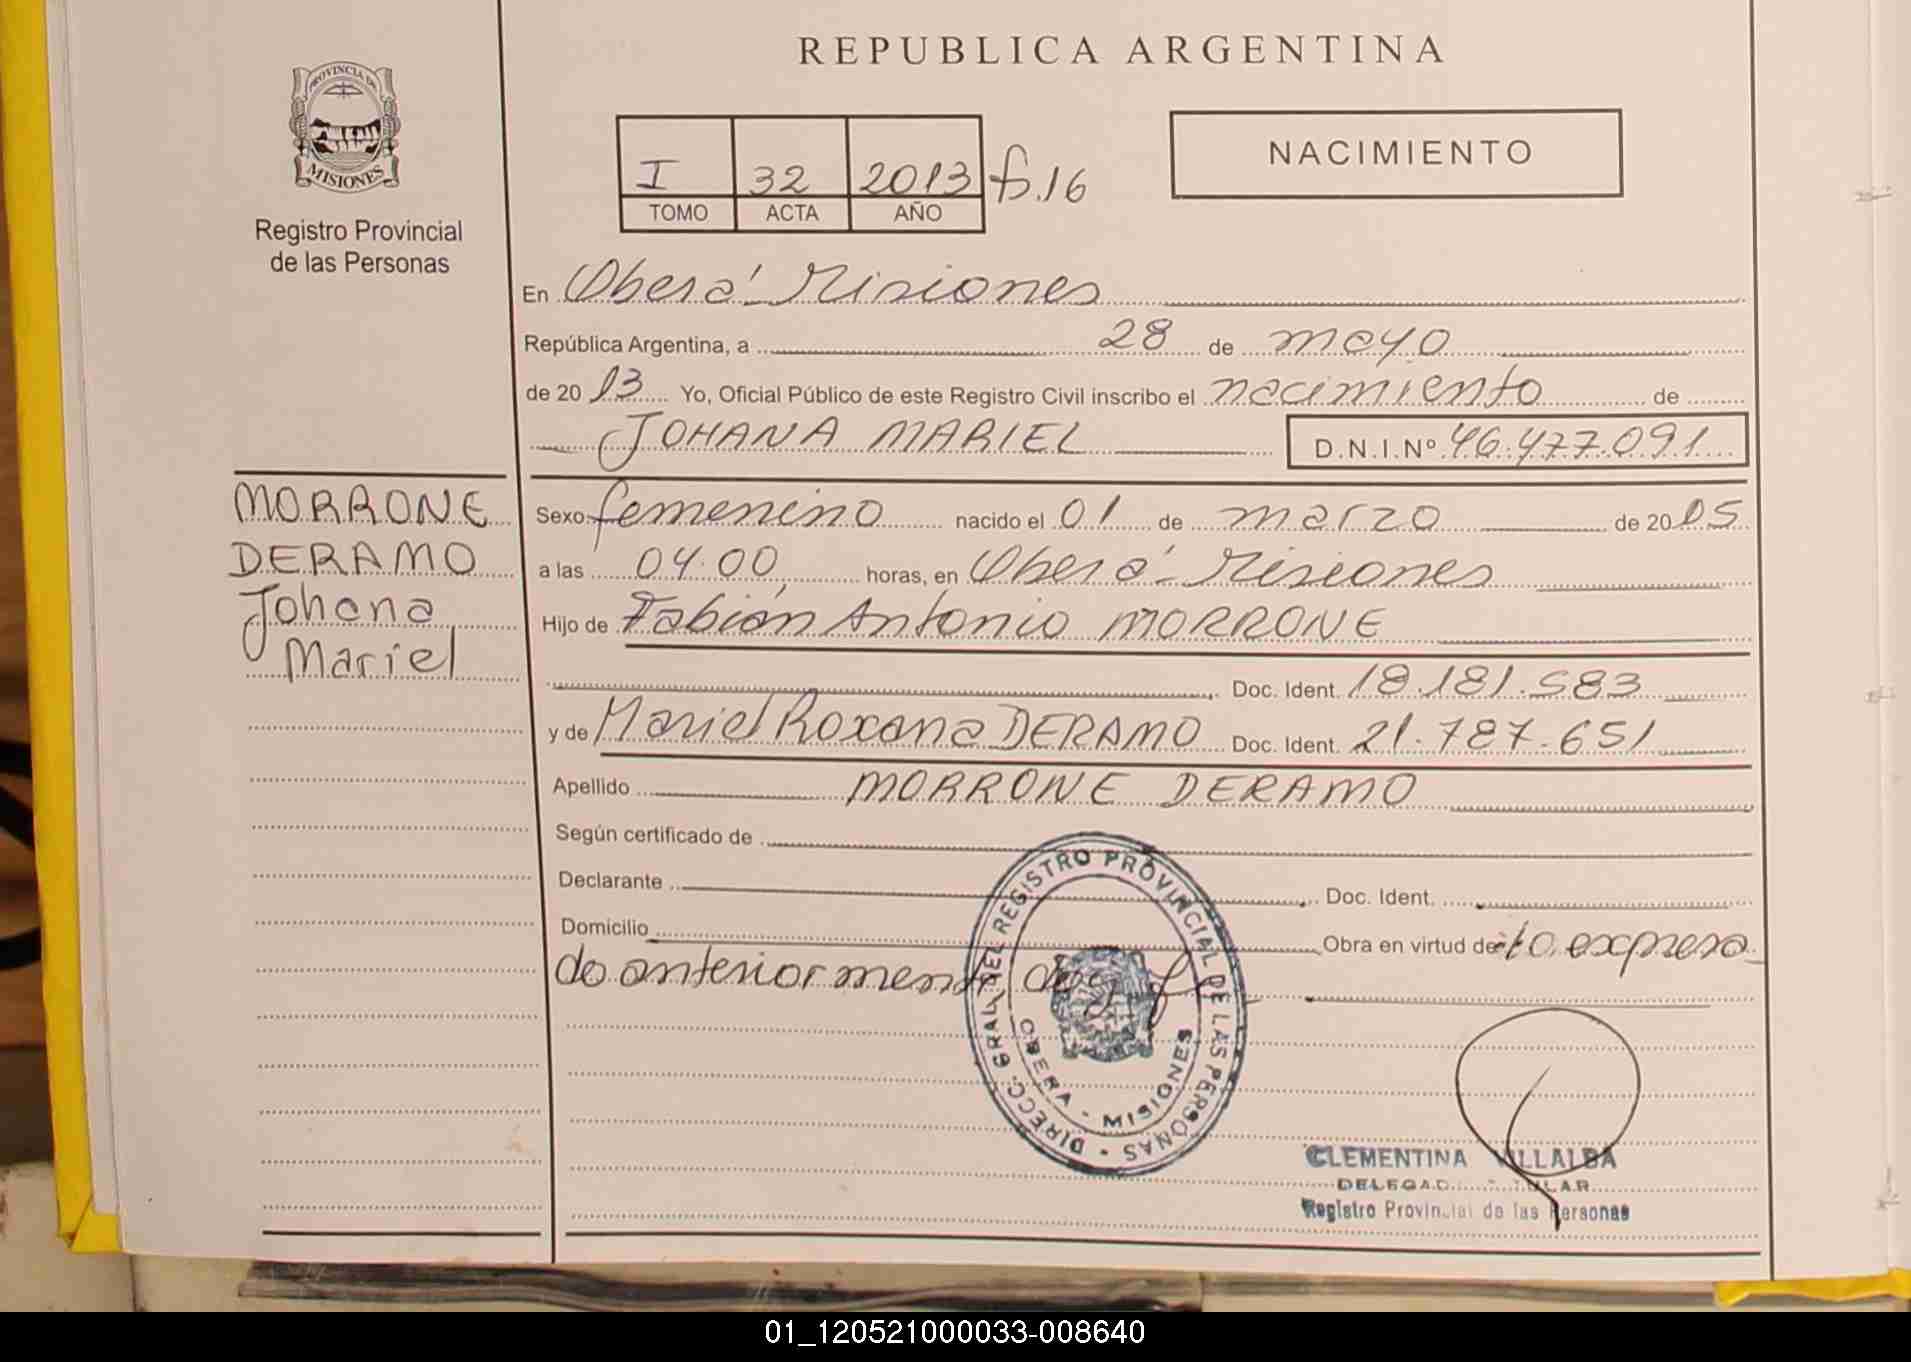 REPUBLICA ARGENTINA
PROVINCIA DE
MISIONES
Registro Provincial
de las Personas
I 32 2013 f.16
TOMO ACTA AÑO
NACIMIENTO
En Oberá - Misiones
República Argentina, a 28 de mayo
de 20 13 Yo, Oficial Público de este Registro Civil inscribo el nacimiento de
JOHANA MARIEL D.N.I.Nº 46.477.091
MORRONE
DERAMO
Johana
Mariel
Sexo: femenino nacido el 01 de marzo de 20 05
a las 04.00 horas, en Oberá - Misiones
Hijo de Fabián Antonio MORRONE
Doc. Ident. 18.181.583
y de Mariel Roxana DERAMO Doc. Ident. 21.787.651
Apellido MORRONE DERAMO
Según certificado de
Declarante Doc. Ident.
Domicilio Obra en virtud de lo expresa
do anteriormente
DIRECC. GRAL. DEL REGISTRO PROVINCIAL DE LAS PERSONAS
OBERA - MISIONES
CLEMENTINA VILLALBA
Registro Provincial de las Personas
01_120521000033-008640